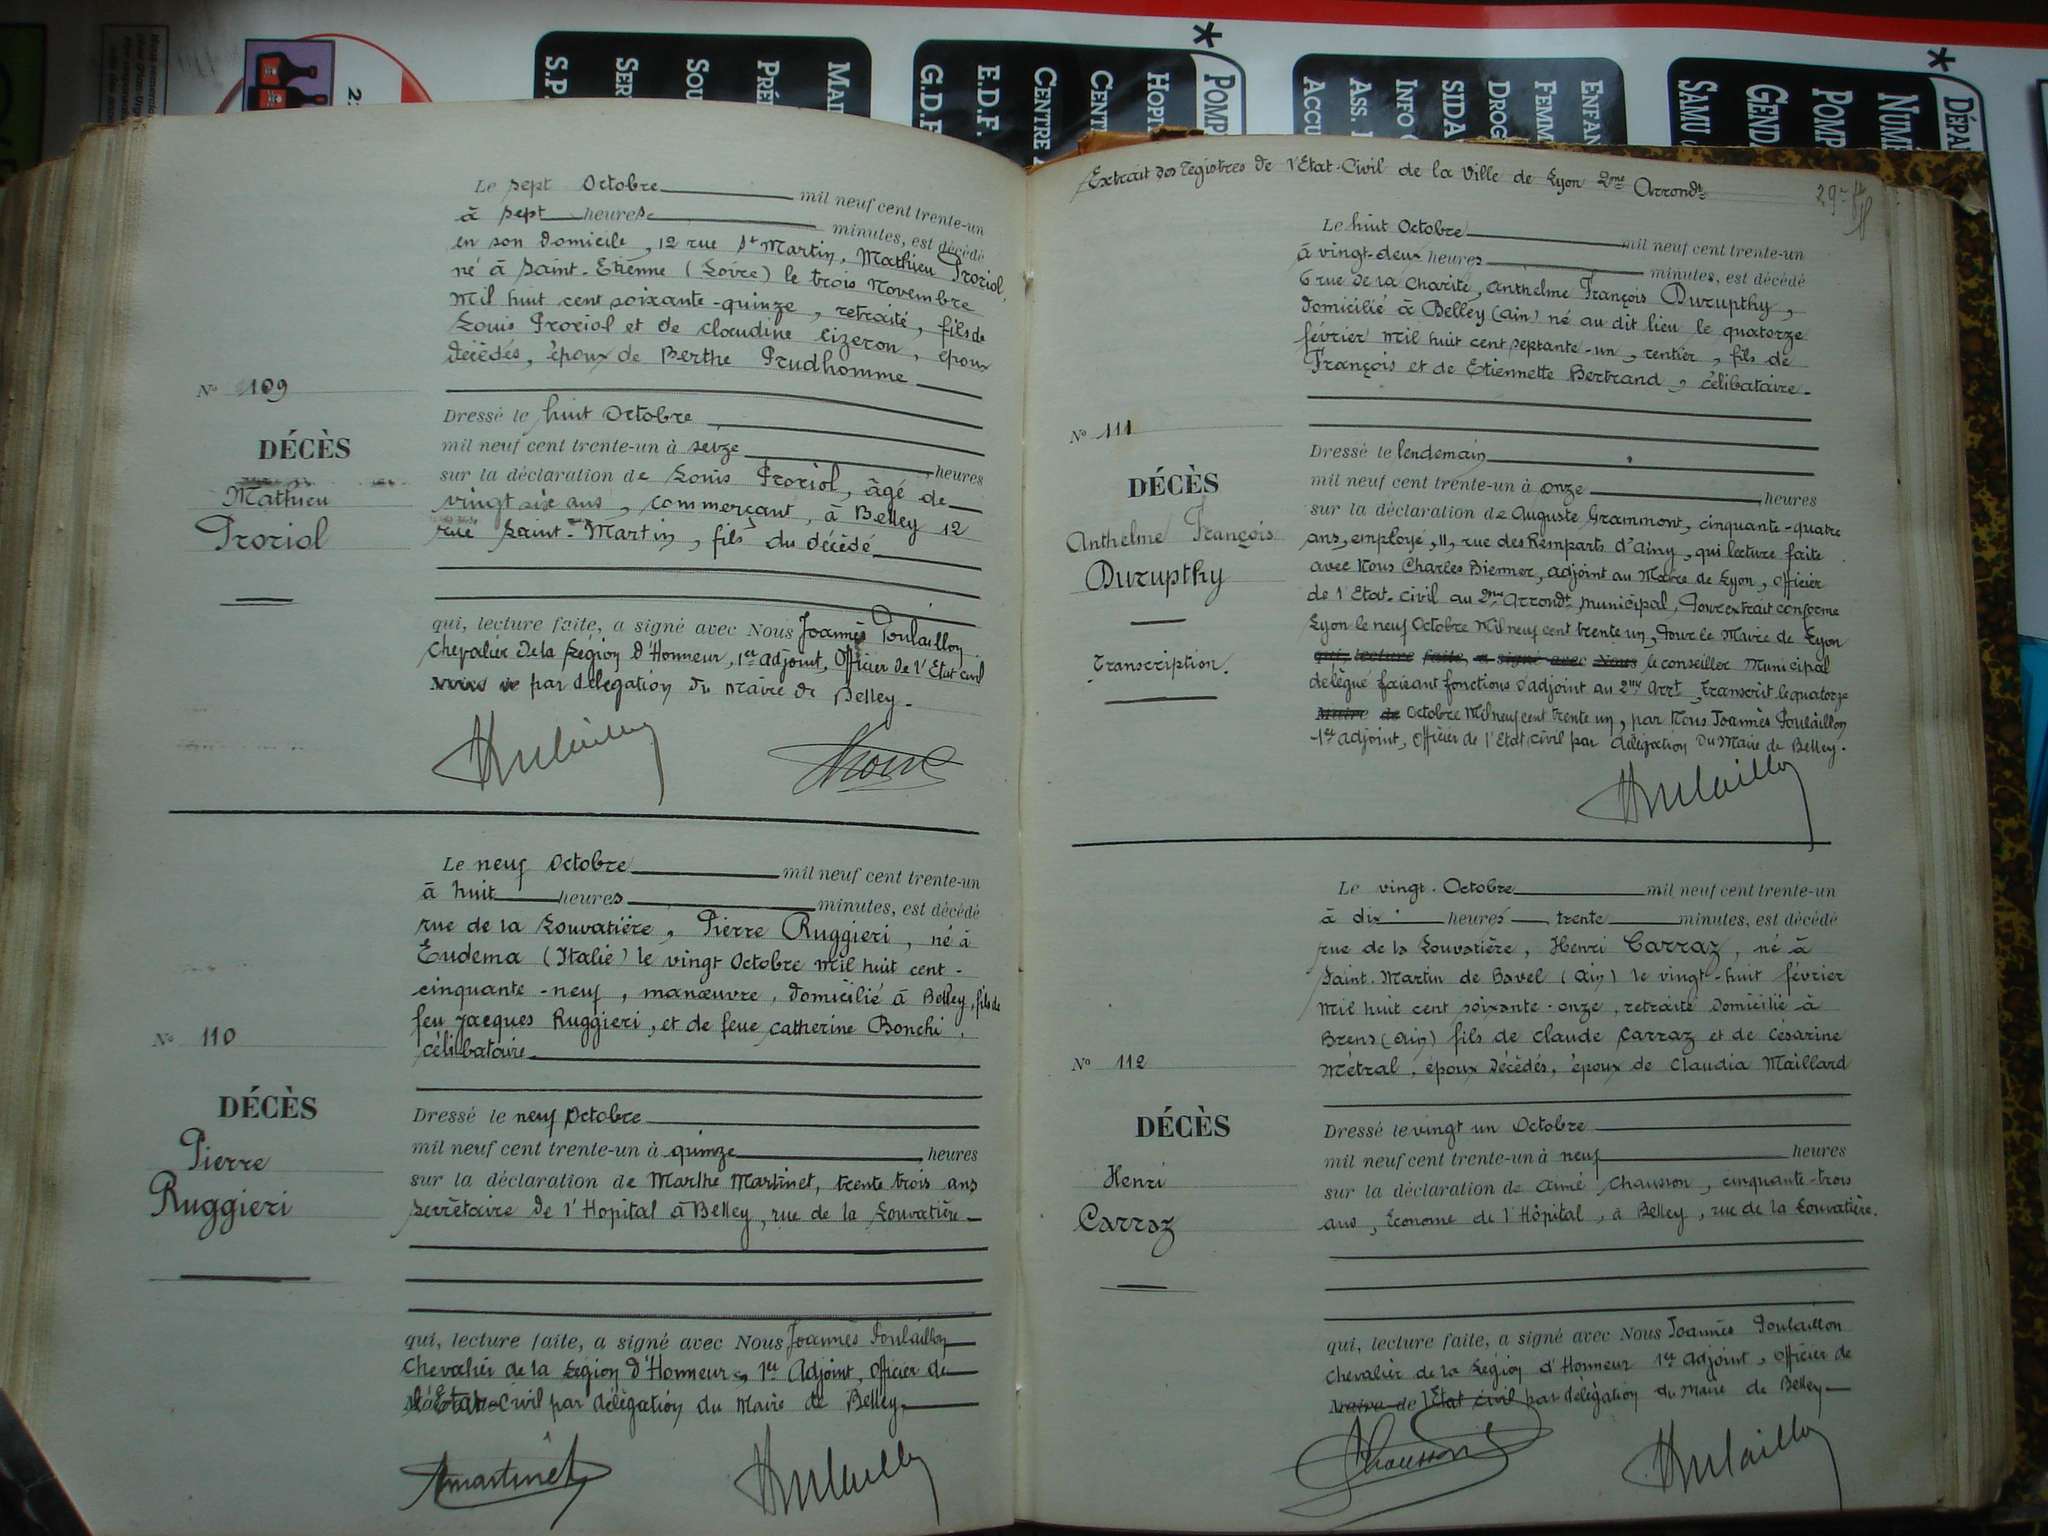 MAI
PRÉF
SOU
SER
S.P.
POMP
HOPI
CENT
CENTRE
E.D.F.
G.D.F
ENFAN
FEMM
DROG
SIDA
INFO
ASS.
ACCU
DÉPA
NUMÉ
POMP
GEND
SAMU
Le sept Octobre mil neuf cent trente-un
à sept heures minutes, est décédé
en son domicile, 12 rue St Martin, Mathieu Proriol,
né à Saint-Etienne (Loire) le trois Novembre
Mil huit cent soixante-quinze, retraité, fils de
Louis Proriol et de Claudine Cizeron, époux
décédés, époux de Berthe Prudhomme
No 109
DÉCÈS
Mathieu
Proriol
Dressé le huit Octobre
mil neuf cent trente-un à seize heures
sur la déclaration de Louis Proriol, âgé de
vingt six ans, commerçant, à Belley 12
rue Saint-Martin, fils du décédé
qui, lecture faite, a signé avec Nous Joannès Poulaillon
Chevalier de la Légion d'Honneur, 1er adjoint, Officier de l'Etat civil
par délégation du Maire de Belley.
Le neuf Octobre mil neuf cent trente-un
à huit heures minutes, est décédé
rue de la Louvatière, Pierre Ruggieri, né à
Eudema (Italie) le vingt Octobre mil huit cent-
cinquante-neuf, manœuvre, domicilié à Belley, fils de
feu Jacques Ruggieri, et de feue Catherine Bonchi,
célibataire
No 110
DÉCÈS
Pierre
Ruggieri
Dressé le neuf Octobre
mil neuf cent trente-un à quinze heures
sur la déclaration de Marthe Martinet, trente trois ans
secrétaire de l'Hopital à Belley, rue de la Louvatière
qui, lecture faite, a signé avec Nous Joannès Poulaillon
Chevalier de la Légion d'Honneur, 1er Adjoint, Officier de
l'Etat-Civil par délégation du Maire de Belley.
Martinet
Extrait des registres de l'Etat-Civil de la Ville de Lyon 2ème Arrondt
Le huit Octobre mil neuf cent trente-un
à vingt-deux heures minutes, est décédé
6 rue de la Charité, Anthelme François Durupthy,
domicilié à Belley (Ain) né au dit lieu le quatorze
février mil huit cent septante-un, rentier, fils de
François et de Etiennette Bertrand, célibataire.
No 111
DÉCÈS
Anthelme François
Durupthy
Transcription.
Dressé le lendemain
mil neuf cent trente-un à onze heures
sur la déclaration de Auguste Grammont, cinquante-quatre
ans, employé, 11, rue des Remparts d'Ainy, qui lecture faite
avec Nous Charles Biennier, adjoint au Maire de Lyon, Officier
de l'Etat-Civil au 2me Arrondt municipal, Pour extrait conforme
Lyon le neuf Octobre Mil neuf cent trente un, Pour le Maire de Lyon
qui, lecture faite, a signé avec Nous le conseiller Municipal
délégué faisant fonctions d'adjoint au 2me Arrt, Transcrit le quatorze
Maire de Octobre Mil neuf cent trente un, par Nous Joannès Poulaillon
1er adjoint, Officier de l'Etat civil par délégation du Maire de Belley.
Le vingt Octobre mil neuf cent trente-un
à dix heures trente minutes, est décédé
rue de la Louvatière, Henri Carraz, né à
Saint-Martin de Bavel (Ain) le vingt-huit février
Mil huit cent soixante-onze, retraité domicilié à
Brens (Ain) fils de Claude Carraz et de Césarine
Métral, époux décédés, époux de Claudia Maillard
No 112
DÉCÈS
Henri
Carraz
Dressé le vingt un Octobre
mil neuf cent trente-un à neuf heures
sur la déclaration de Aimé Chausson, cinquante-trois
ans, Econome de l'Hôpital, à Belley, rue de la Louvatière.
qui, lecture faite, a signé avec Nous Joannès Poulaillon
Chevalier de la Légion d'Honneur 1er adjoint, Officier de
Maire de l'Etat civil par délégation du Maire de Belley
Chausson